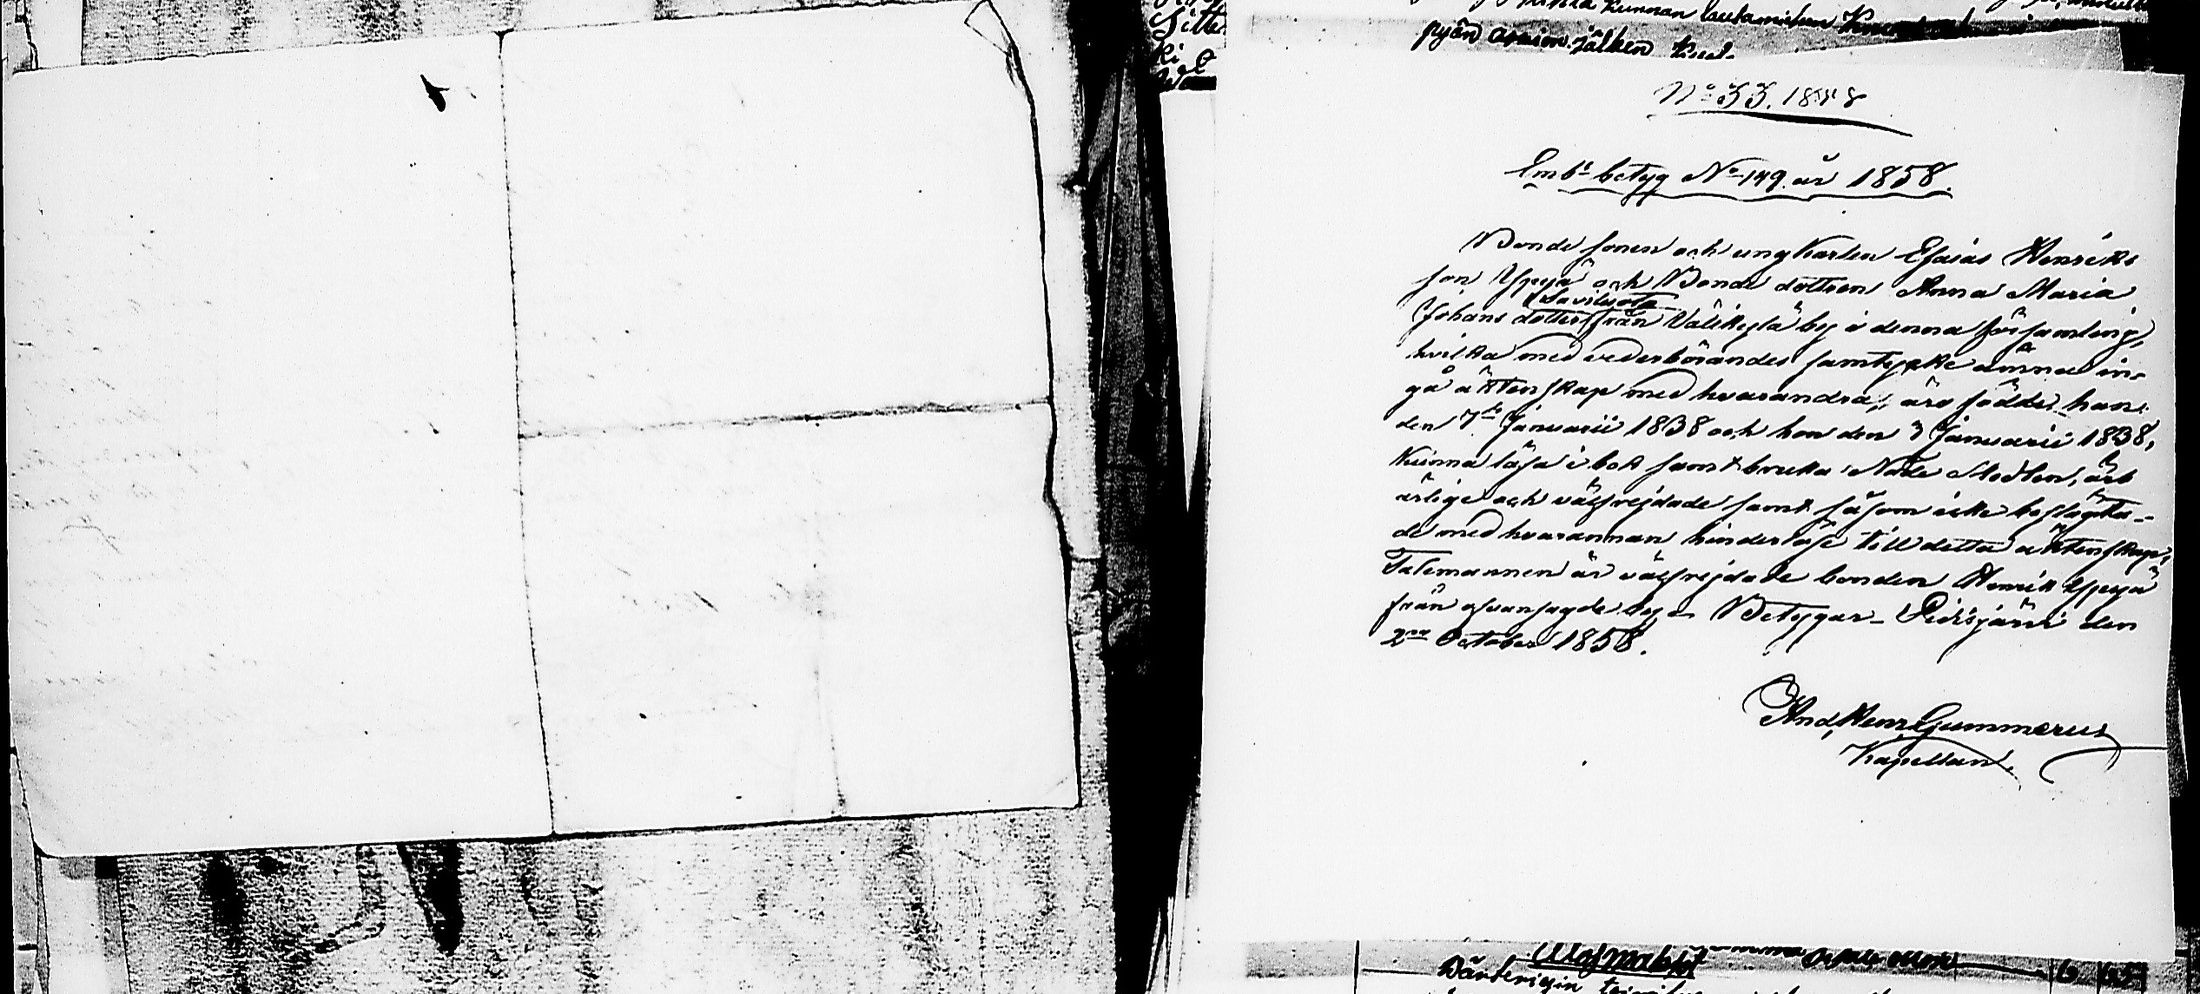 pyän asian jälken
No 33. 1858
Embts betyg No 149 år 1858.
Bonde sonen och ungkarlen Esaias Henriks
son Yppyä och Bonde dottren Anna Maria
Saviluoto
Johans dotter från Välikylä by i denna församling,
hvilka med vederbörandes samtycke ämna in-
gå äktenskap med hvarandra, äro födde han
den 7de Januarii 1838 och hon den 3 Januarii 1838,
Kunna läsa i bok samt bruka Nåde Medlen, äro
ärlige och välfrejdade samt såsom icke beslägta-
de med hvarannan hinderlöse till detta äktenskap,
Talemannen är välfrejdade bonden Henrik Yppyä
från ofvansagde by - Betygar - Pidisjärvi den
2dra October 1858.
And, Henr, Gummerus
Kapellan.